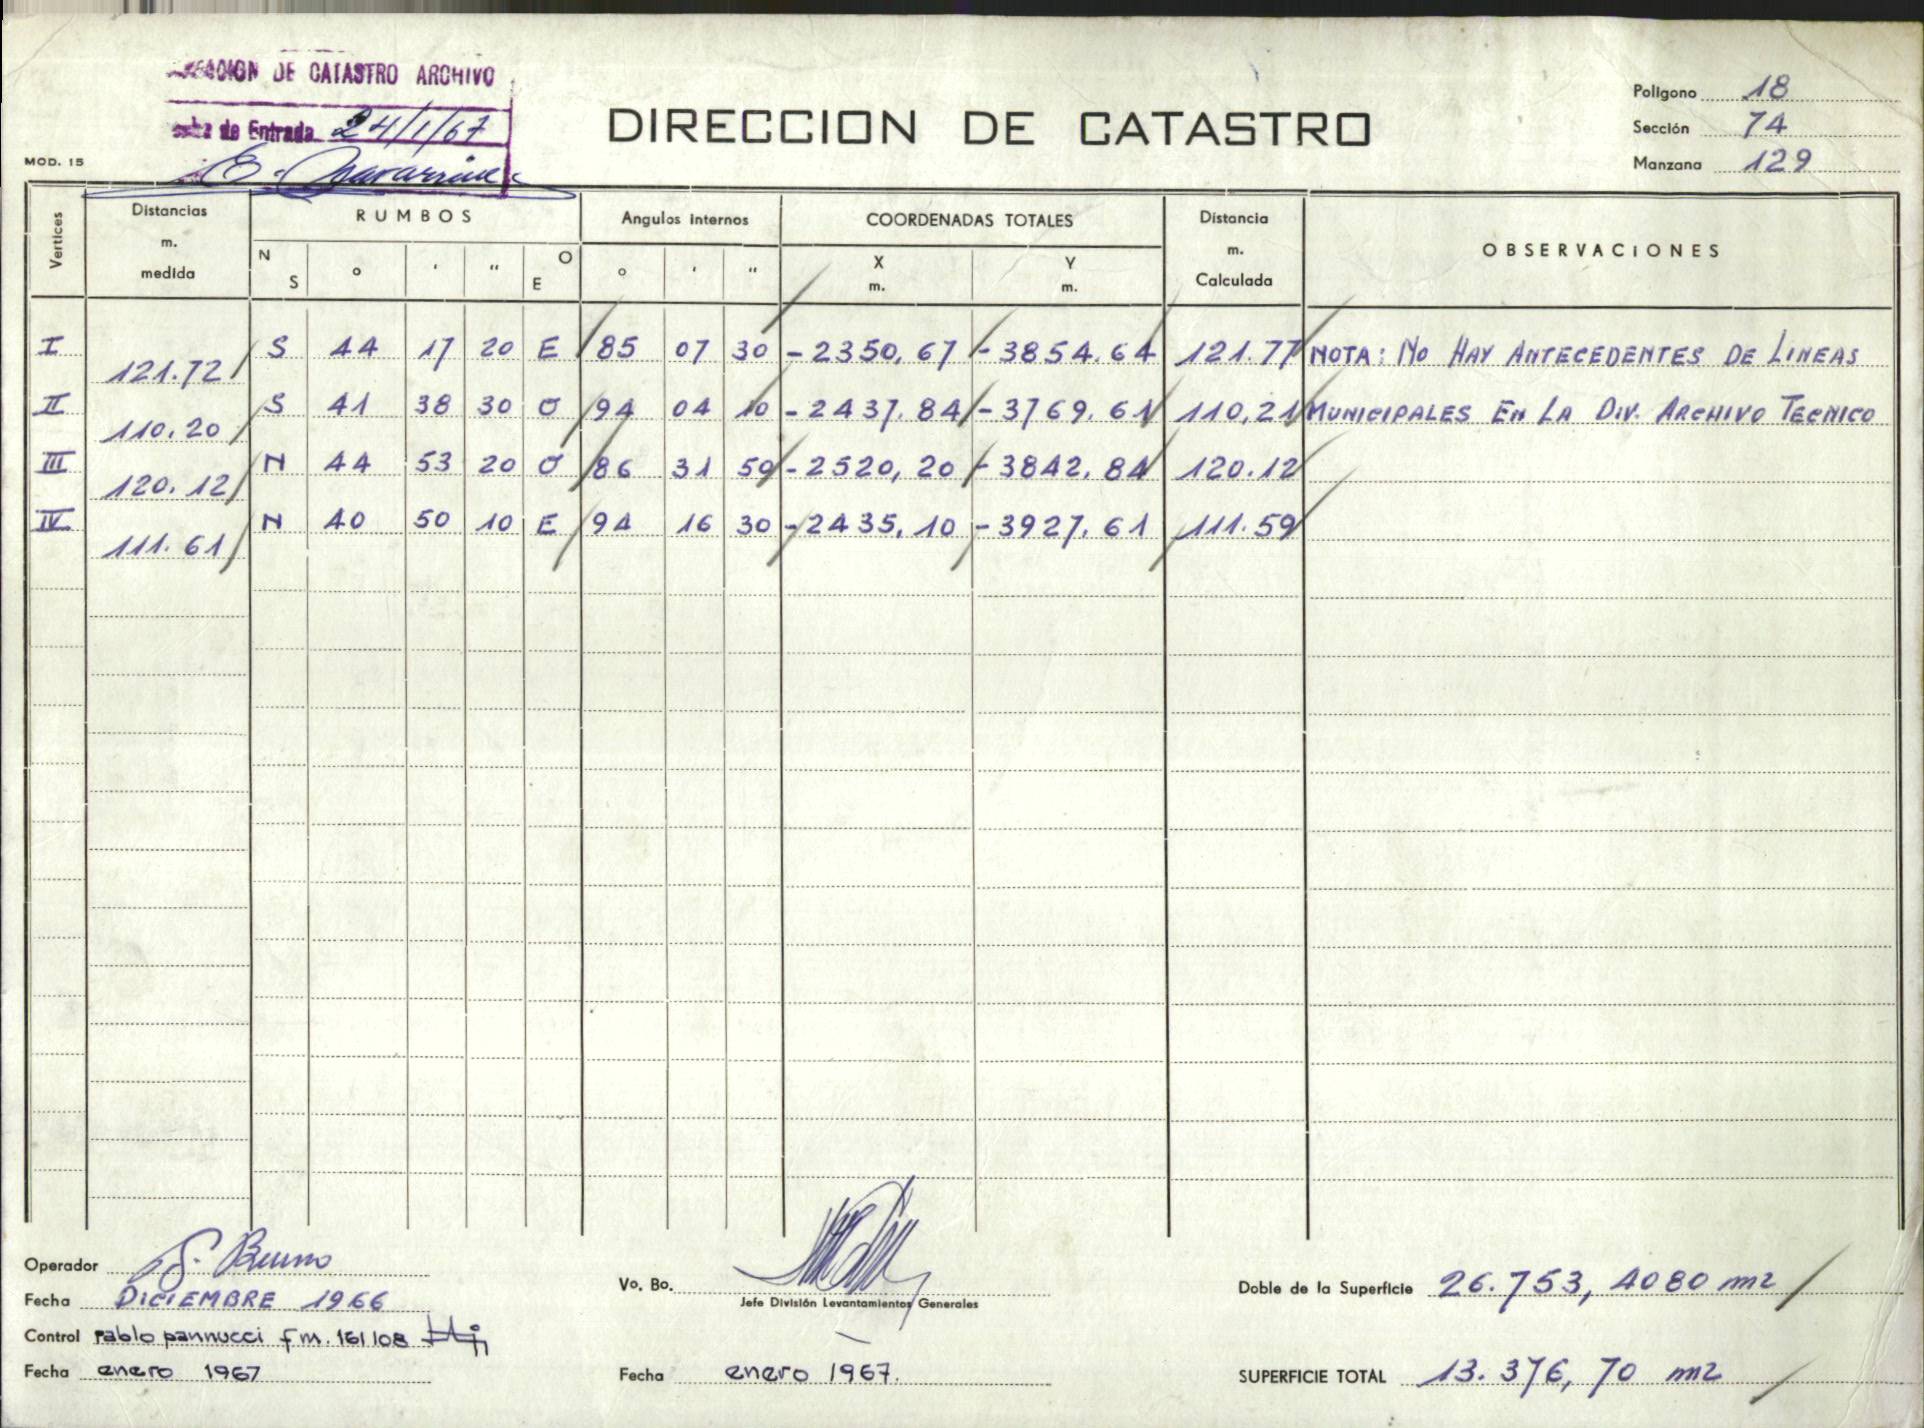 DE CATASTRO ARCHIVO
de Entrada 24/1/67
MOD. 15
DIRECCION DE CATASTRO
Polígono 18
Sección 74
Manzana 129
Vertices Distancias m. medida RUMBOS N S o ' " O E Angulos internos o ' " COORDENADAS TOTALES X m. Y m. Distancia m. Calculada OBSERVACIONES
I 121.72 S 44 17 20 E 85 07 30 -2350,67 -3854.64 121.77 NOTA: NO HAY ANTECEDENTES DE LINEAS
II 110.20 S 41 38 30 O 94 04 10 -2437.84 -3769.61 110,21 MUNICIPALES EN LA DIV. ARCHIVO TECNICO
III 120.12 N 44 53 20 O 86 31 50 -2520,20 -3842.84 120.12
IV 111.61 N 40 50 10 E 94 16 30 -2435,10 -3927.61 111.59
Operador Bruno
Fecha DICIEMBRE 1966
Control Pablo pannucci fm. 161108
Fecha enero 1967
Vo. Bo.
Jefe División Levantamientos Generales
Fecha enero 1967.
Doble de la Superficie 26.753,4080 m2
SUPERFICIE TOTAL 13.376,70 m2